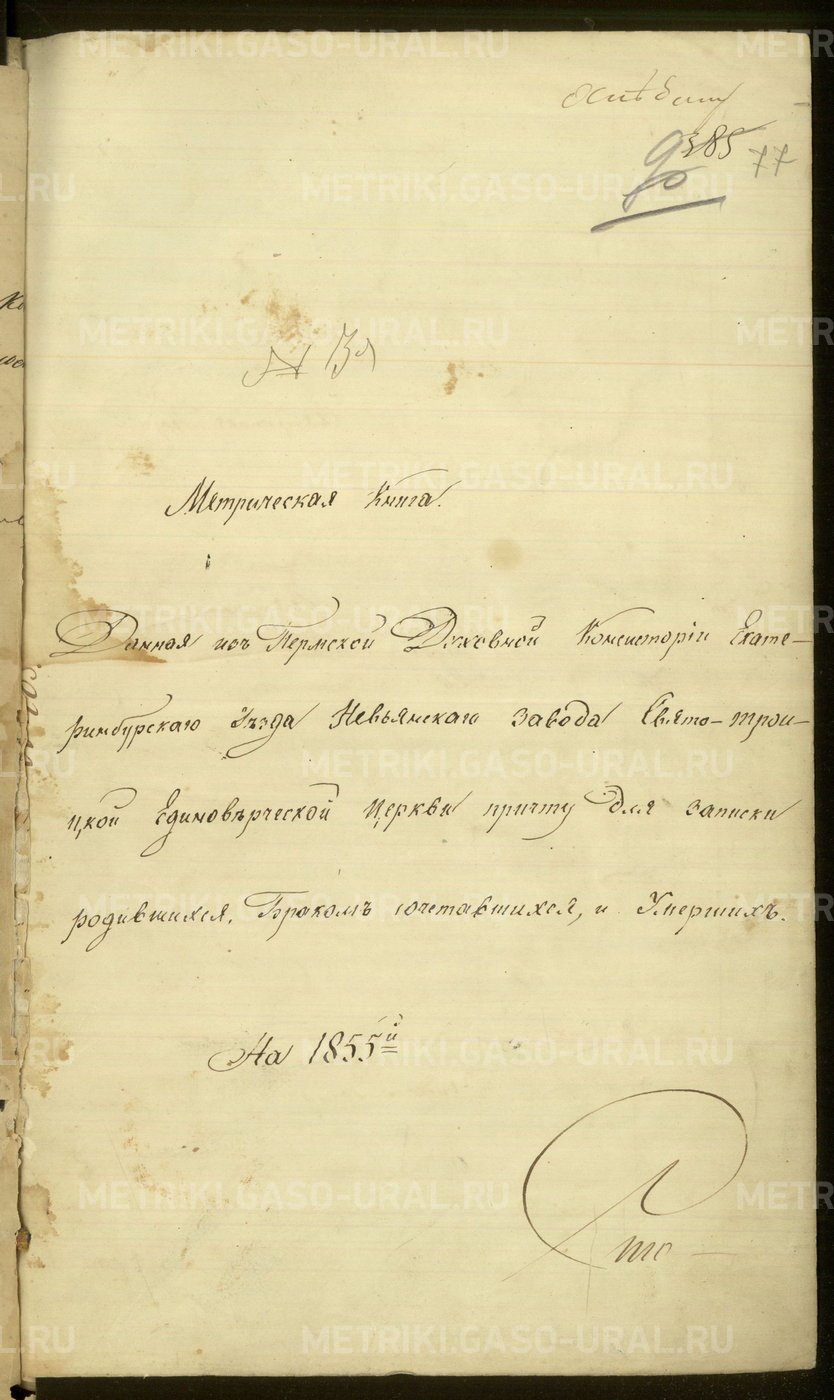 385
77
Метрическая Книга.
Данная изъ Пермской Духовной Консисторіи Екате-
ринбурскаго Уѣзда Невьянскаго завода Свято-трои-
цкой Единовѣрческой Церкви причту для записки
родившихся, Бракомъ сочетавшихся, и Умершихъ.
На 1855й
METRIKI.GASO-URAL.RU